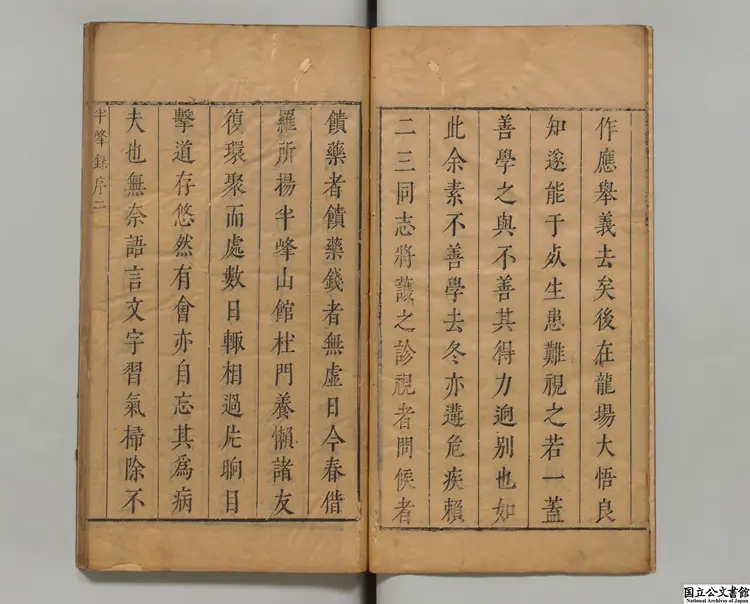 作應舉義去矣後在龍場大悟良
知遂能于㱠生患難視之若一蓋
善學之與不善其得力逈别也如
此余素不善學去冬亦遘危疾賴
二三同志將護之診視者問候者
饋藥者饋藥錢者無虛日今春借
羅所揚半峰山館杜門養懶諸友
復環聚而處數日輙相過片晌目
擊道存悠然有會亦自忘其爲病
夫也無奈語言文字習氣掃除不
半峰錄序二
国立公文書館
National Archives of Japan